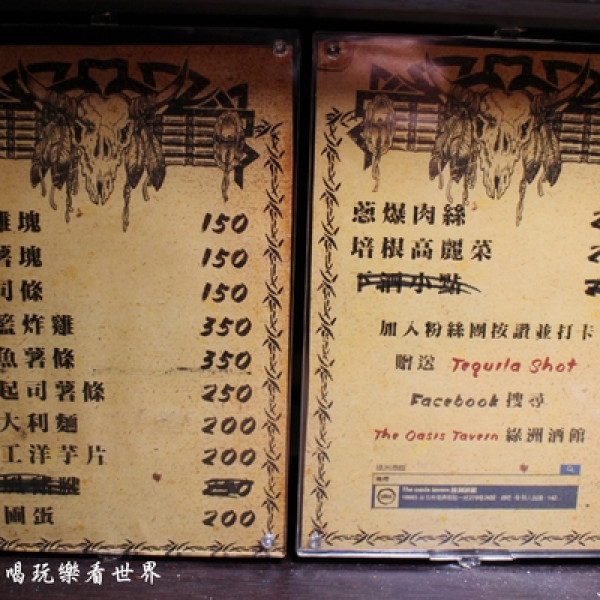 雞塊 150
薯塊 150
司條 150
籃炸雞 350
魚薯條 350
起司薯條 250
大利麵 200
工洋芋片 200
250
圖蛋 200
蔥爆肉絲 2
培根高麗菜 2
下酒小點
加入粉絲團按讚並打卡
贈送 Tequila Shot
Facebook 搜尋
The Oasis Tavern 綠洲酒館
The oasis tavern
喝玩樂看世界